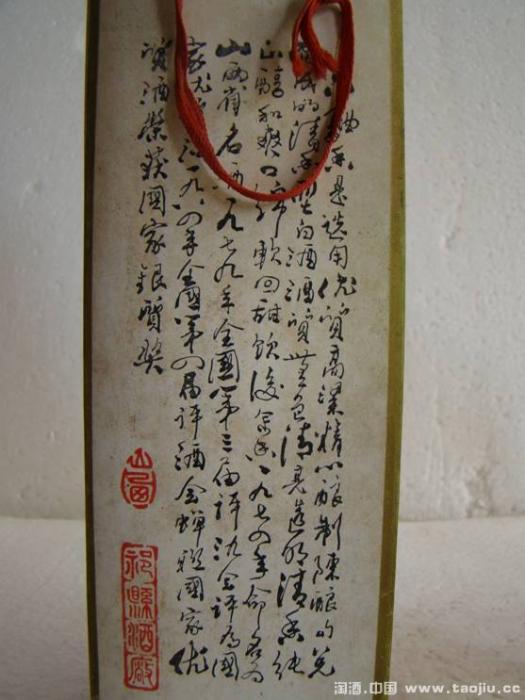 是选用优质高粱精心酿制陈酿的兑
成的清香型白酒酒质无色清亮透明清香纯
正醇和爽口绵软回甜饮后余香一九七四年命名为
山西省名酒一九七九年全国第三届评酒会评为国
家优一九八四年全国第四届评酒会蝉联国家优
质酒荣获国家银质奖
山西
祁縣酒厰
淘酒.中国 www.taojiu.cc